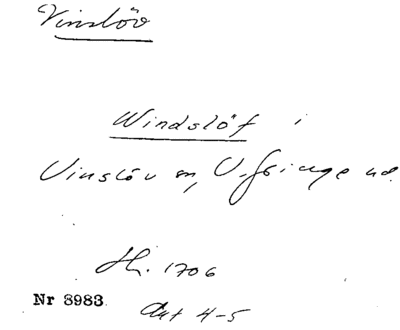 Vinslöv
Windslöf i
Vinslöv sn, V. Göinge hd.
Jb. 1706
Nr 3983
Avt 4-5